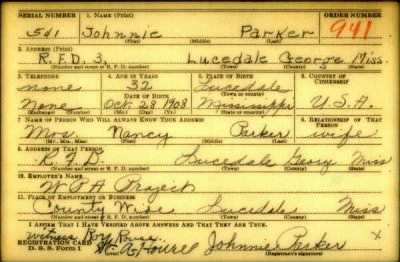 SERIAL NUMBER 1. NAME (Print) ORDER NUMBER
541 Johnnie Parker 941
(First) (Middle) (Last)
2. ADDRESS (Print)
R.F.D. 3. Lucedale George Miss.
(Number and street or R. F. D. number) (Town) (County) (State)
3. TELEPHONE 4. AGE IN YEARS 5. PLACE OF BIRTH 6. COUNTRY OF CITIZENSHIP
none 32 Lucedale
DATE OF BIRTH (Town or county)
None Oct. 28 1908 Mississippi U.S.A.
(Mo.) (Day) (Yr.) (State or country)
7. NAME OF PERSON WHO WILL ALWAYS KNOW YOUR ADDRESS 8. RELATIONSHIP OF THAT PERSON
Mrs. Nancy Parker wife
(Mr., Mrs., Miss) (First) (Middle) (Last)
9. ADDRESS OF THAT PERSON
R.F.D. Lucedale George Miss
(Number and street or R. F. D. number) (Town) (County) (State)
10. EMPLOYER'S NAME
WPA Project
11. PLACE OF EMPLOYMENT OR BUSINESS
County Wide Lucedale Miss
(Number and street or R. F. D. number) (Town) (County) (State)
I AFFIRM THAT I HAVE VERIFIED ABOVE ANSWERS AND THAT THEY ARE TRUE.
witness
REGISTRATION CARD Johnnie Parker x
D. S. S. Form 1 (Registrant's signature)